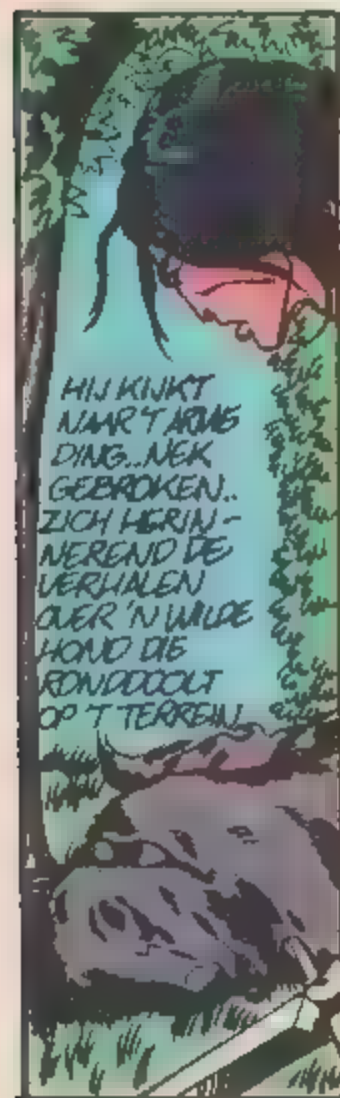 HIJ KIJKT
NAAR 'T ARME
DING..NEK
GEBROKEN..
ZICH HERIN-
NEREND DE
VERHALEN
OVER 'N WILDE
HOND DIE
RONDDOOLT
OP 'T TERREIN.